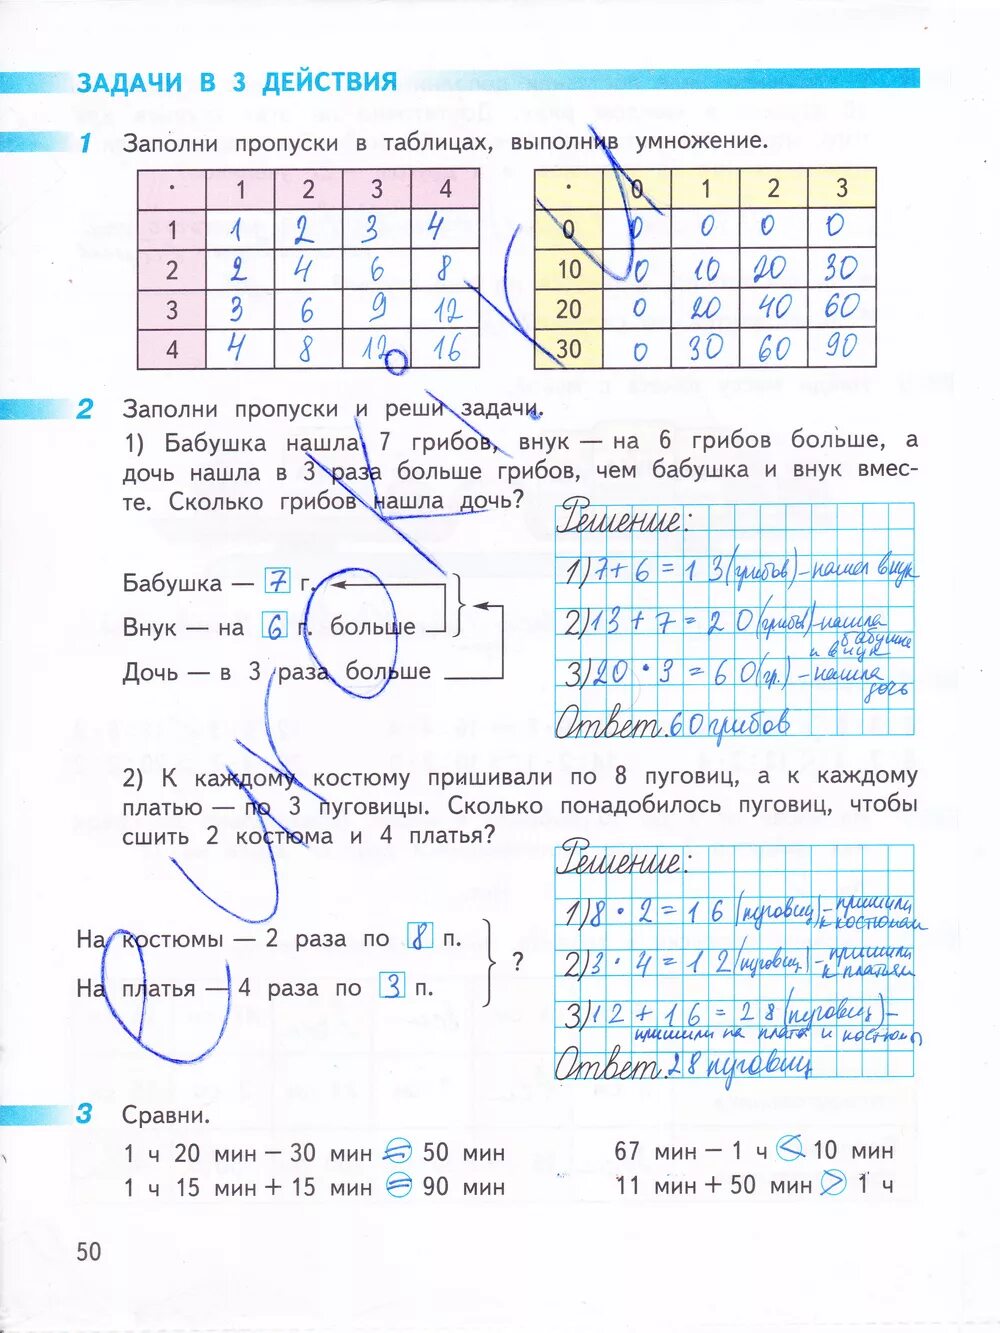 ЗАДАЧИ В 3 ДЕЙСТВИЯ
1 Заполни пропуски в таблицах, выполнив умножение.
· 1 2 3 4
1 1 2 3 4
2 2 4 6 8
3 3 6 9 12
4 4 8 12 16
· 0 1 2 3
0 0 0 0 0
10 0 10 20 30
20 0 20 40 60
30 0 30 60 90
2 Заполни пропуски и реши задачи.
1) Бабушка нашла 7 грибов, внук — на 6 грибов больше, а
дочь нашла в 3 раза больше грибов, чем бабушка и внук вмес-
те. Сколько грибов нашла дочь?
Бабушка — 7 г.
Внук — на 6 г. больше
Дочь — в 3 раза больше
Решение:
1) 7 + 6 = 13 (грибов) – нашел внук
2) 13 + 7 = 20 (грибов) – нашла
бабушка
и внук
3) 20 · 3 = 60 (гр.) – нашла
дочь
Ответ. 60 грибов
2) К каждому костюму пришивали по 8 пуговиц, а к каждому
платью — по 3 пуговицы. Сколько понадобилось пуговиц, чтобы
сшить 2 костюма и 4 платья?
На костюмы — 2 раза по 8 п.
На платья — 4 раза по 3 п.
?
Решение:
1) 8 · 2 = 16 (пуговиц) – пришили
к костюмам
2) 3 · 4 = 12 (пуговиц) – пришили
к платьям
3) 12 + 16 = 28 (пуговиц) –
пришили на платья и костюмы
Ответ. 28 пуговиц
3 Сравни.
1 ч 20 мин – 30 мин = 50 мин
1 ч 15 мин + 15 мин = 90 мин
67 мин – 1 ч < 10 мин
11 мин + 50 мин > 1 ч
50